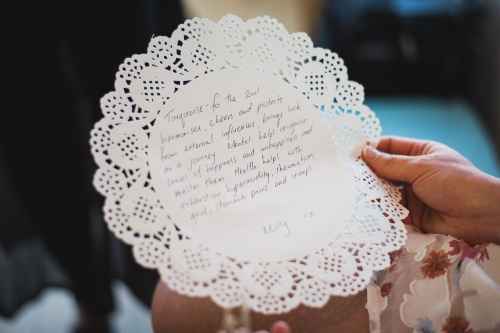 Turquoise - for the Soul
harmonises, cheers and protects
from external influences, brings luck
on a journey. Mental helps recognise
causes of happiness and unhappiness and
master them. Health: helps with
exhaustion, hyperacidity, rheumatism,
gout, stomach pains and cramps
Milly